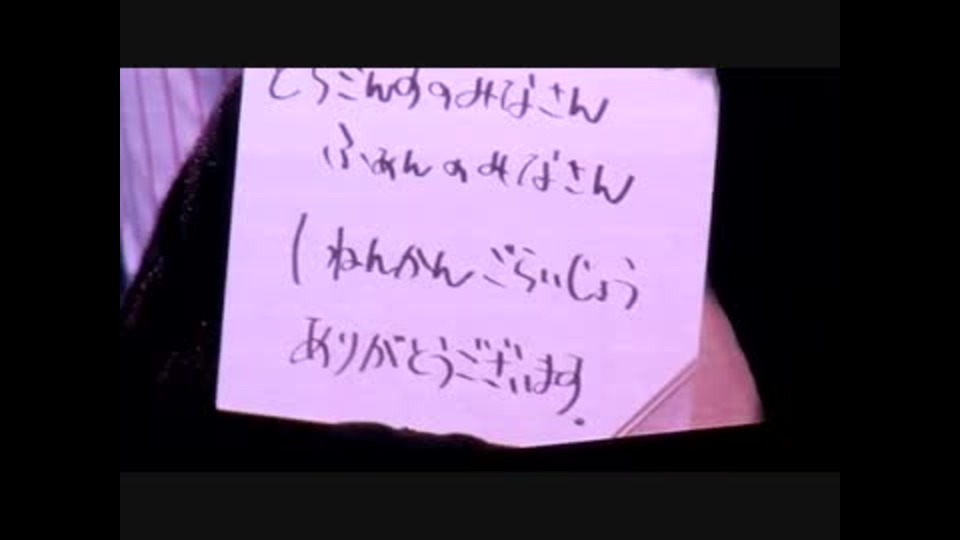 どらごんずのみなさん
ふぁんのみなさん
1ねんかんごらいじょう
ありがとうございます。